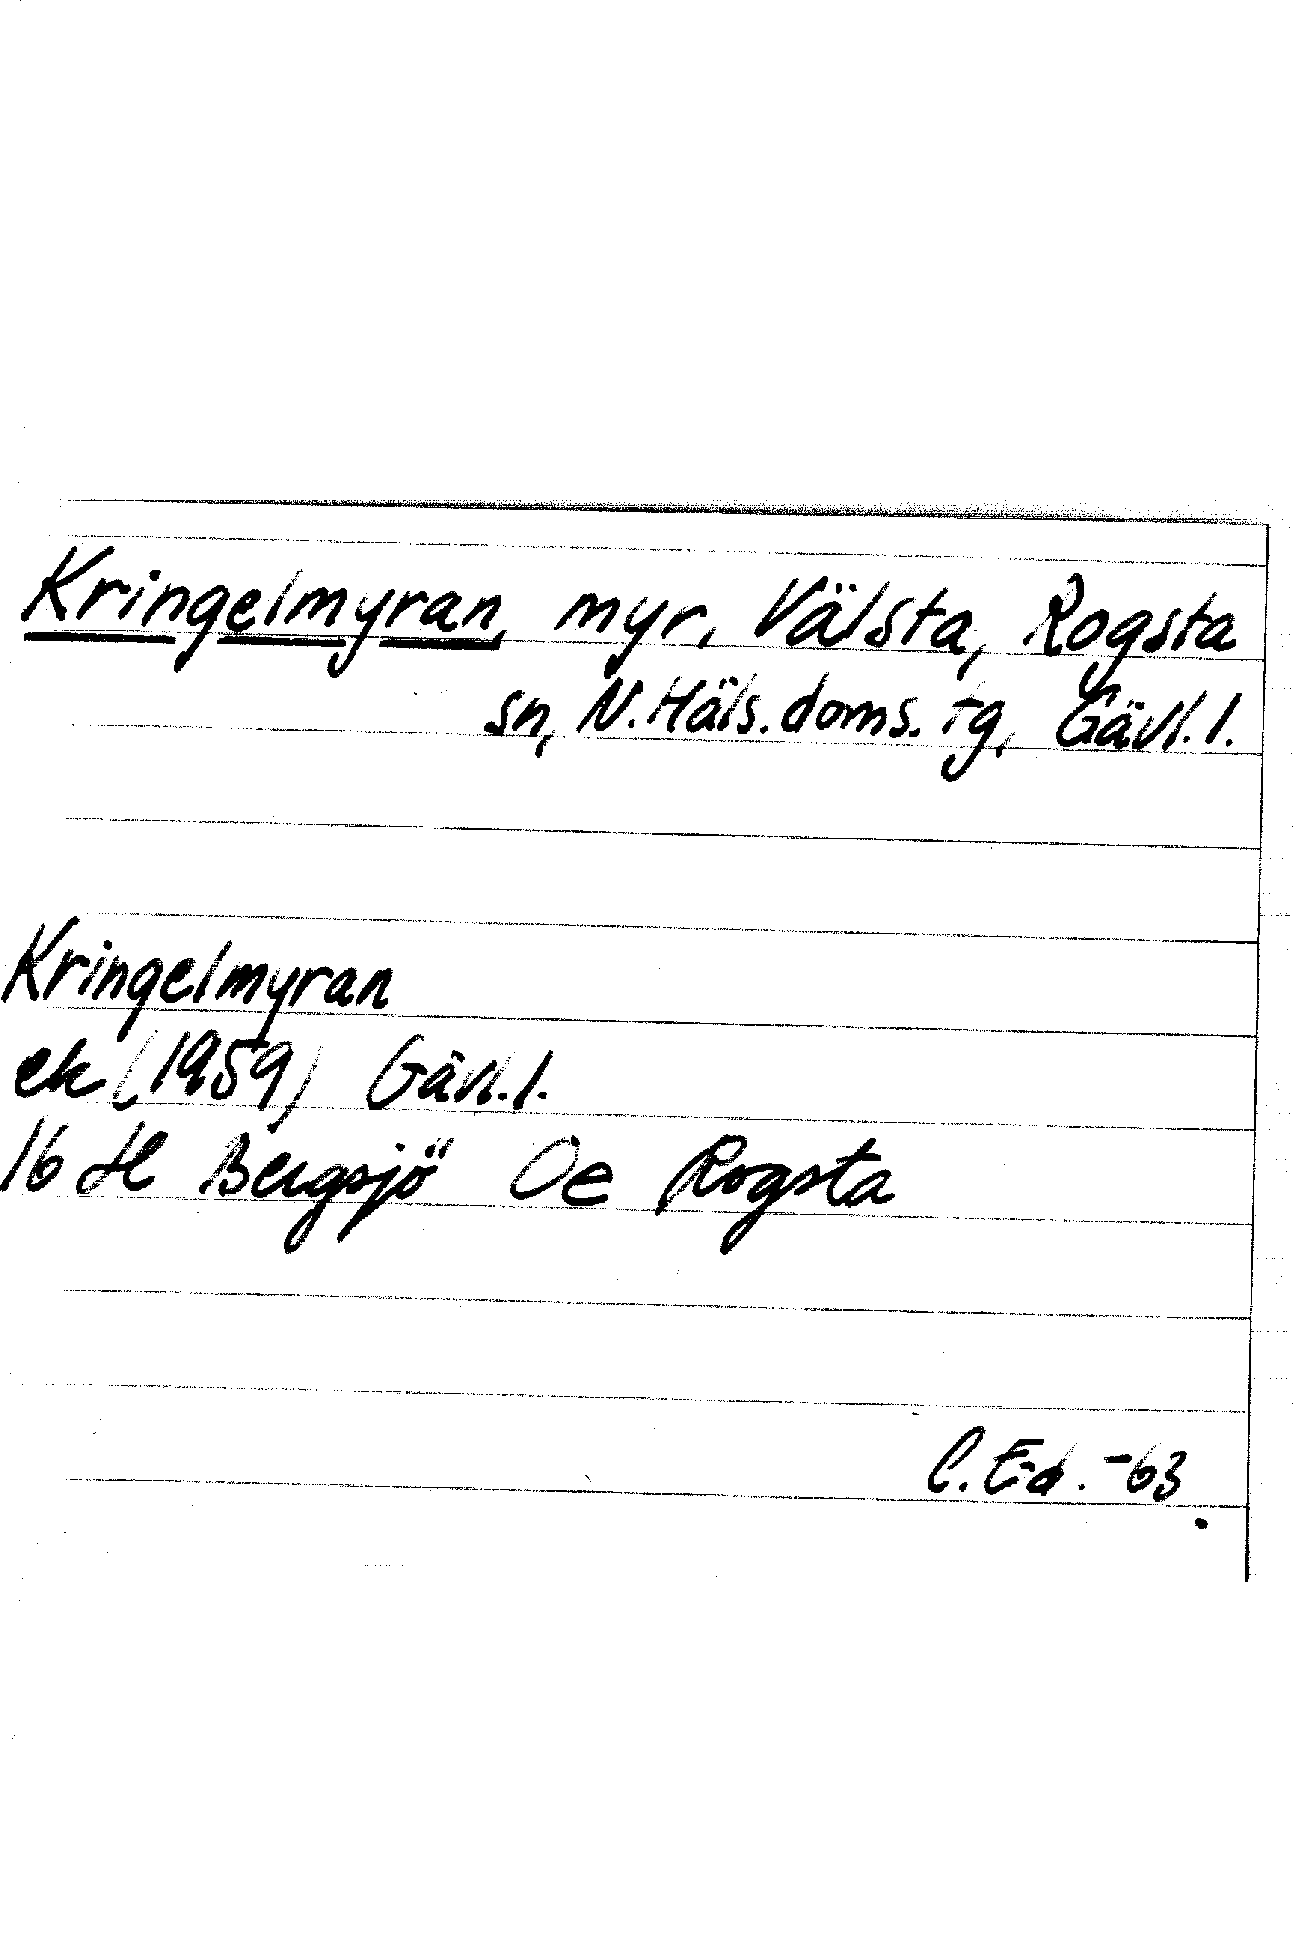 Kringelmyran, myr, Välsta, Rogsta
sn, N. Häls. doms. tg, Gävl. l.
Kringelmyran
ek (1959) Gävl. l.
16 H Bergsjö Oe Rogsta
C. Ed. -63